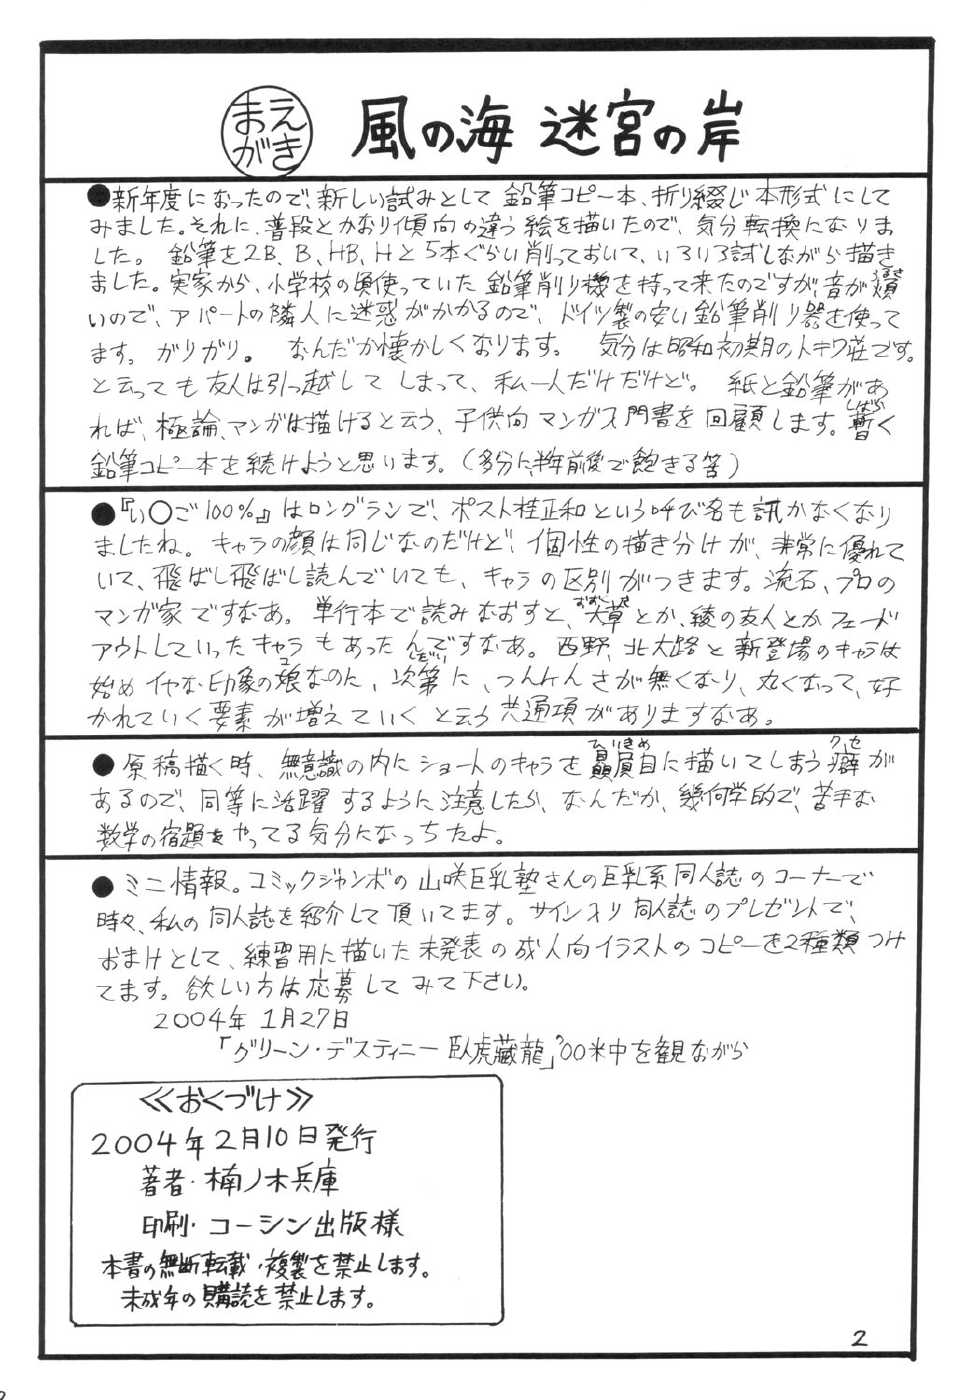 まえがき
風の海 迷宮の岸
●新年度になったので、新しい試みとして 鉛筆コピー本、折り綴じ本形式にして
みました。それに、普段とかなり傾向の違う絵を描いたので、気分転換になりま
した。 鉛筆を2B、B、HB、Hと5本ぐらい削っておいて、いろいろ試しながら描き
ました。実家から、小学校の頃使っていた 鉛筆削り機を持って来たのですが、音が煩
いので、アパートの隣人に迷惑がかかるので、ドイツ製の安い鉛筆削り器を使って
ます。ガリガリ。 なんだか懐かしくなります。 気分は昭和初期のトキワ荘です。
と云っても友人は引っ越してしまって、私一人だけだけど。 紙と鉛筆があ
れば、極論、マンガは描けると云う、子供向マンガ入門書を回顧します。暫く
鉛筆コピー本を続けようと思います。(多分に半年前後で飽きる筈)
●『い○ご100%』はロングランで、ポスト桂正和という呼び名も訊かなくなり
ましたね。キャラの顔は同じなのだけど、個性の描き分けが、非常に優れて
いて、飛ばし飛ばし読んでいても、キャラの区別がつきます。流石、プロの
マンガ家ですなあ。単行本で読みなおすと、大草とか、綾の友人とかフェード
アウトしていったキャラもあったんですなあ。西野、北大路と新登場のキャラは
始めイヤな印象の娘なのに、次第に、つんけんさが無くなり、丸くなって、好
かれていく要素が増えていくと云う共通項がありますなあ。
●原稿描く時、無意識の内にショートのキャラを贔屓目に描いてしまう癖が
あるので、同等に活躍するように注意したら、なんだか、幾何学的で、苦手な
数学の宿題をやってる気分になっちたよ。
●ミニ情報。コミックジャンボの山咲巨乳塾さんの巨乳系同人誌のコーナーで
時々、私の同人誌を紹介して頂いてます。サイン入り同人誌のプレゼントで、
おまけとして、練習用に描いた未発表の成人向イラストのコピーを2種類つけ
てます。欲しい方は応募してみて下さい。
2004年1月27日
「グリーン・デスティニー 臥虎蔵龍」'00米中を観ながら
≪おくづけ≫
2004年2月10日発行
著者・楠ノ木兵庫
印刷・コーシン出版様
本書の無断転載・複製を禁止します。
未成年の購読を禁止します。
2